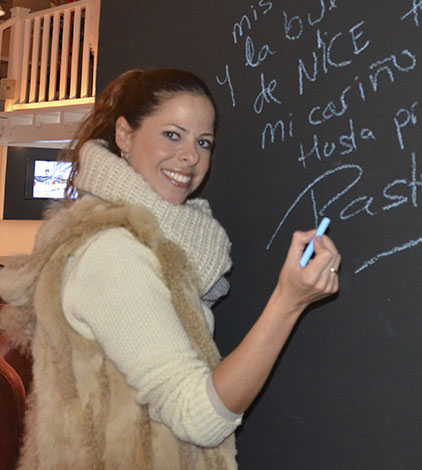 mis
y la bue
de NICE
mi cariño
Hasta pi
Past